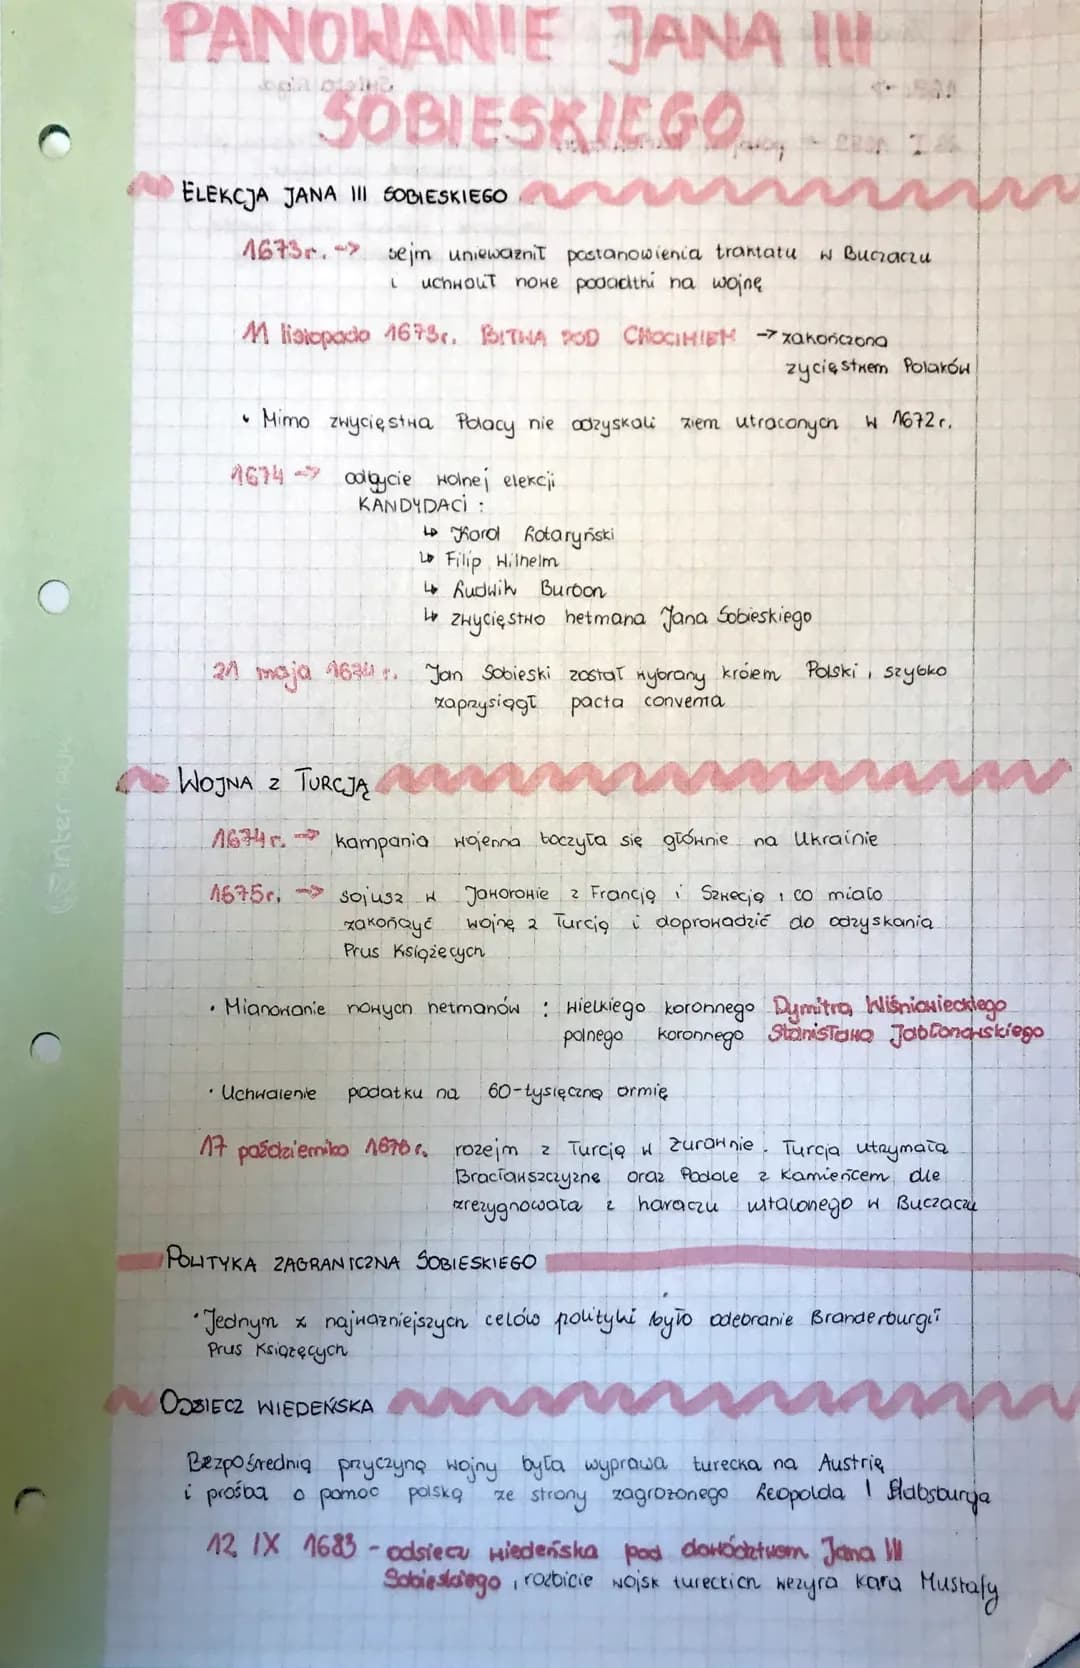 PANOWANIE JANA III
SOBIESKIEGO
ELEKCJA JANA III SOBIESKIEGO
1673r. -> sejm unieważnił postanowienia traktatu w Buczaczu
i uchwalił nowe podatki na wojnę
11 listopada 1673r. BITWA POD CHOCIMIEM -> zakończona
zycięstwem Polaków
• Mimo zwycięstwa Polacy nie odzyskali ziem utraconych w 1672r.
1674 -> odbycie wolnej elekcji
KANDYDACI :
↳ Karol Lotaryński
↳ Filip Wilhelm
↳ Ludwik Burbon
↳ zwycięstwo hetmana Jana Sobieskiego
21 maja 1674 r. Jan Sobieski został wybrany królem Polski, szybko
zaprzysiągł pacta conventa
WOJNA Z TURCJĄ
1674r. -> kampania wojenna toczyła się głównie na Ukrainie
1675r. -> sojusz w Jaworowie z Francją i Szwecją, co miało
zakończyć wojnę z Turcją i doprowadzić do odzyskania
Prus Książęcych
• Mianowanie nowych hetmanów : wielkiego koronnego Dymitra Wiśniowieckiego
polnego koronnego Stanisława Jabłonowskiego
• Uchwalenie podatku na 60-tysięczną armię
17 października 1676 r. rozejm z Turcją w Żurawnie. Turcja utrzymała
Bracławszczyznę oraz Podole z Kamieńcem ale
zrezygnowała z haraczu ustalonego w Buczaczu
POLITYKA ZAGRANICZNA SOBIESKIEGO
• Jednym z najważniejszych celów polityki było odebranie Branderburgii
Prus Książęcych
ODSIECZ WIEDEŃSKA
Bezpośrednią przyczyną wojny była wyprawa turecka na Austrię
i prośba o pomoc polską ze strony zagrożonego Leopolda I Habsburga
12 IX 1683 - odsiecz wiedeńska pod dowództwem Jana III
Sobieskiego, rozbicie wojsk tureckich wezyra Kara Mustafy